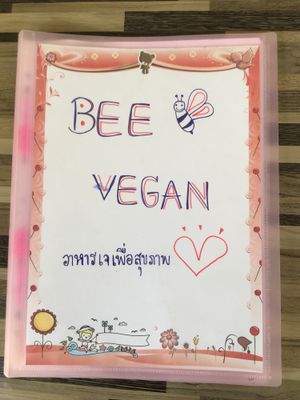 BEE
VEGAN
อาหารเจเพื่อสุขภาพ